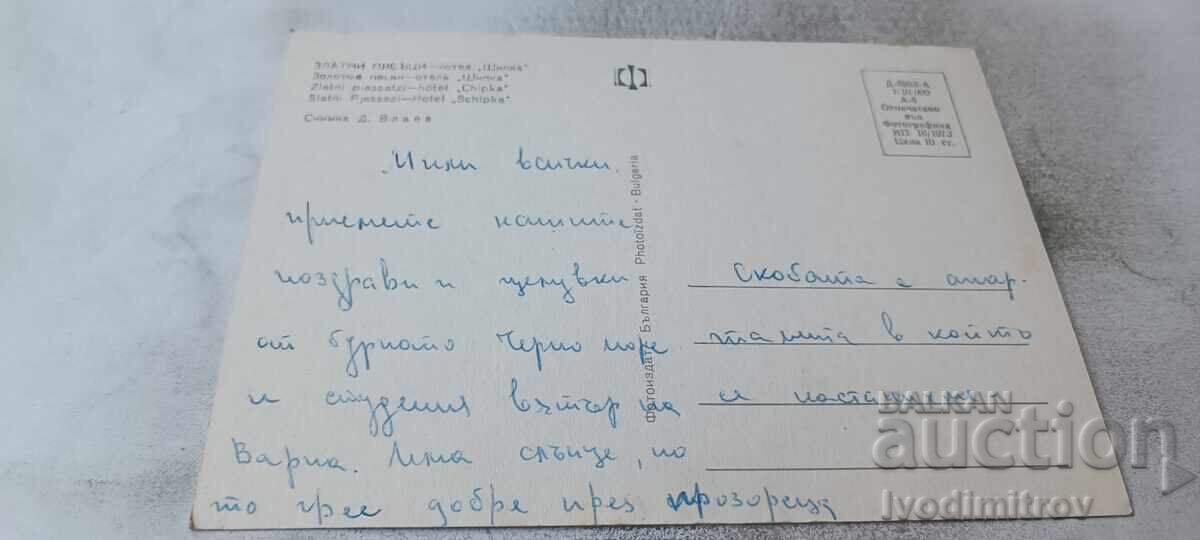 ЗЛАТНИ ПЯСЪЦИ—хотел „Шипка"
Золотые пески—отель „Шипка"
Zlatni piassatzi—hôtel „Chipka"
Slatni Pjassazi—Hotel „Schipka"
Снимка Д. Влаев
Д-5003-А
Отпечатано
във
Фотографика
ИП 10/1973
Цена 10 ст.
Фотоиздат - България Photoizdat - Bulgaria
Мили всички,
приемете нашите
поздрави и целувки
от бурното Черно море
и студения вятър на
Варна. Има слънце, но
то грее добре през прозореца
Скобата е апар-
тамента в който
се
BALKAN
auction
Ivodimitrov